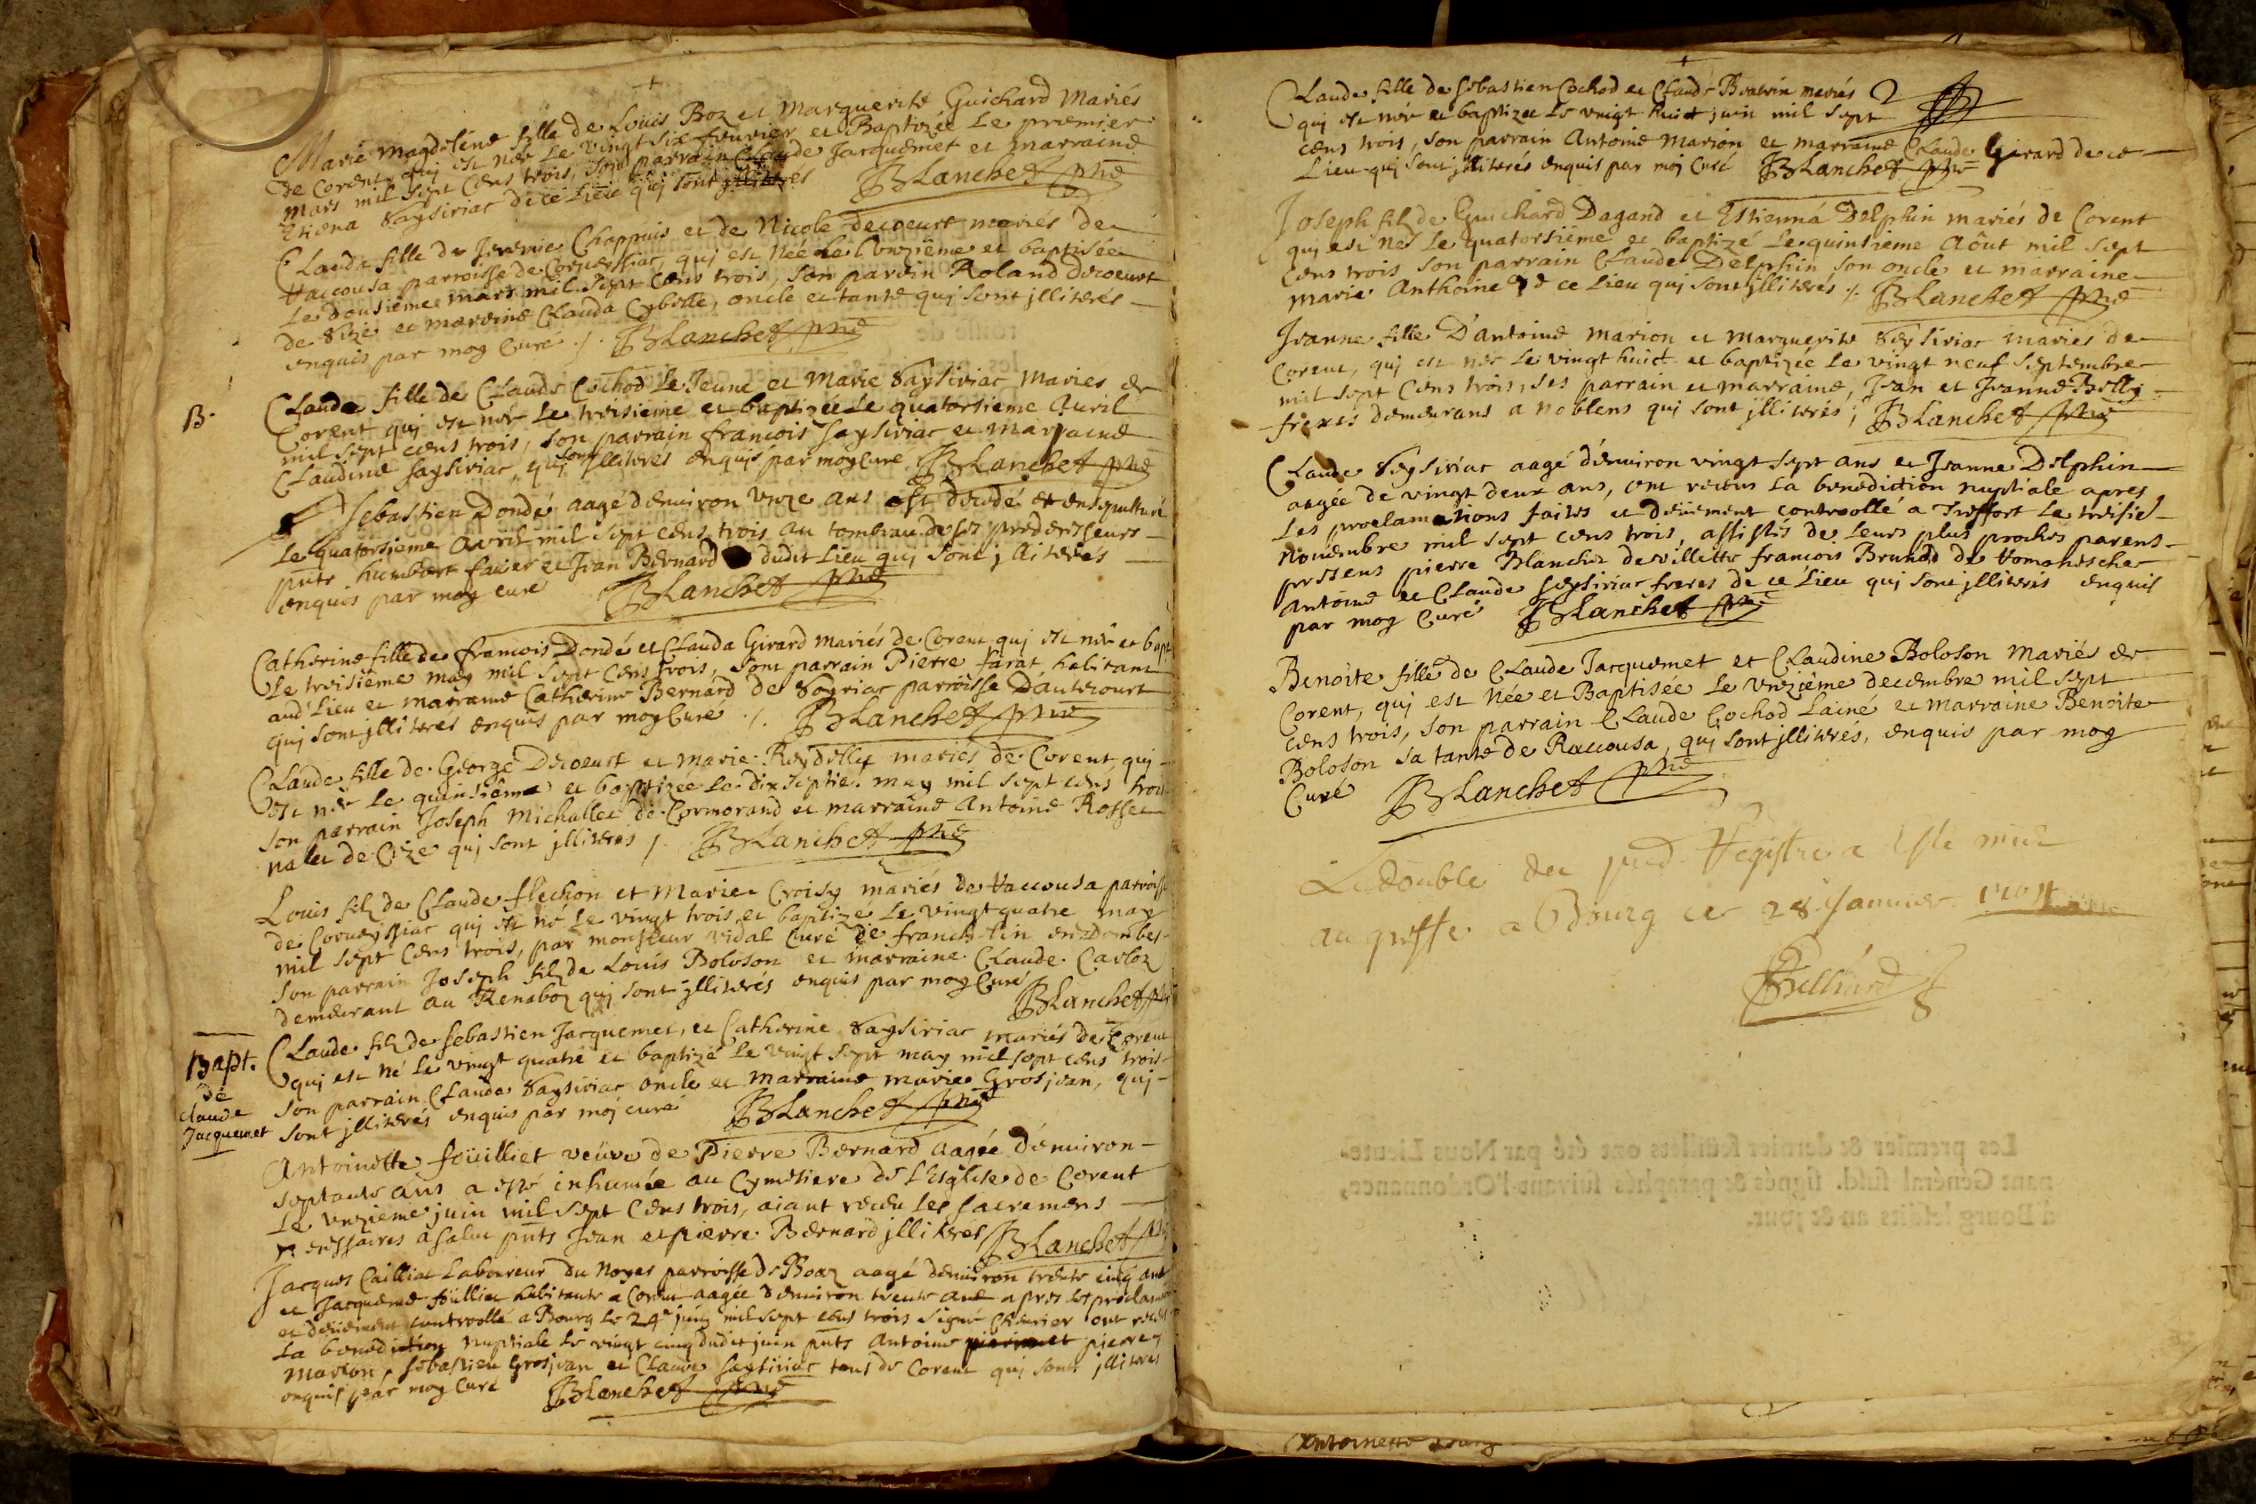 Marie magdeleine fille de Louis Boz et Marguerite Guichard Mariés
de Corent qui est née le vingt six feuvrier et Baptizée Le premier
mars mil sept cens trois, son parrain Claude Jacquemet et marraine
Etiena Saysiriac de ce Lieu qui sont jlliterés BLanchet ptre
CLauda fille de Jeremie Chappuis et de Nicole decoeurt mariés de
Raccousa parroisse de Corveyssiac, qui est Née Le Onzième et baptisée
Le douzième mars mil sept cens trois, son parein Roland decoeurt
de Size et mareine CLauda Cybelle, oncle et tante qui sont jlliterés
enquis par moy Curé ./. BLanchet ptre
B.
CLauda fille de CLaude Cochod Le Jeune et Marie Saysiriac Maries de
Corent qui est née Le treisieme et baptizée Le quatorsieme Auril
mil sept cens trois, son parrain francois saysiriac et Marraine
CLaudine saysiriac, qui sont jlliteres enquis par moy Curé BLanchet ptre
Sebastien Dondé aagé denuiron Unze ans est decedé et ensepulturé
Le quatorsieme Avril mil sept cens trois au tombeau de ses predecesseurs
pnts humbert favier et Jean Bernard dudit Lieu qui sont jlliterés
enquis par moy curé BLanchet ptre
Catherine fille de francois Dondé et CLauda Girard mariés de Corent qui est née et bapt
Le troisième may mil sept cens trois, sont parrain Pierre farat habitant
aud Lieu et marraine Catherine Bernard de Sayriac parroisse D'autecourt
qui sont jlliteres enquis par moy Curé ./. BLanchet ptre
CLauda fille de George Decoeurt et Marie Reydelly mariés de Corent qui
est née le quinsième et baptizée Le dix septie. may mil sept cens trois
son parrain Joseph Michallet de Cormorand et marraine Antoine Rosse
nalet de Cize qui sont jlliteres ./. BLanchet ptre
Louis filz de CLaude flechon et Marie Croisy mariés de Raccousa parroisse
de Corveyssiac qui est né Le vingt trois et baptizé Le vingt quatre may
mil sept cens trois, par monsieur vidal Curé de franchelin en Dombes
son parrain Joseph filz de Louis Boloson et marraine CLaude Carloz
demeurant au Renaboz qui sont jlliterés enquis par moy Curé BLanchet ptre
Bapt.
de
claude
Jacquemet
CLaude filz de sebastien Jacquemet, et Catherine Saysiriac mariés de Corent
qui est né Le vingt quatre et baptizé Le vingt sept may mil sept cens trois
son parrain CLaude Saysiriac oncle et Marraine marie Grosjean, qui
sont jlliterés enquis par moj curé BLanchet ptre
Antoinette foüilliet veüve de Pierre Bernard aagée d'enuiron
septante ans a esté inhumée au Cymetiere de L'Esglise de Corent
Le vnzieme juin mil sept cens trois, aiant receu Les sacremens
necessaires a salut pnts Jean et pierre Bernard jlliterés BLanchet ptre
Jacques Cailliat Laboureur du Noyer parroisse de Boaz aagé denuiron trente cinq ans
et Jacqueme foüilliet habitante a Corent aagée denuiron trente ans apres les proclama
et deuement controollé a Bourg le 24e juin mil sept cens trois signé Cheurier ont receu
La benediction Nuptiale Le vingt cinq dudit juin pnts Antoine pierre
Marion, sebastien Grosjean et CLaude saysiriac tous de Corent qui sont jlliterés
enquis par moy Curé BLanchet ptre
CLauda fille de sebastien Cochod et Clauda Bouvrin mariés 2
qui est née et baptizée Le vingt huict juin mil sept
cens trois, son parrain Antoine Marion et marraine CLauda Girard de ce
Lieu qui sont jlliterés enquis par moj Curé BLanchet ptre
Joseph filz de Guichard Dagand et Estienná Delphin mariés de Corent
qui est né Le quatorsiême et baptizé Le quinsieme Aôut mil sept
cens trois son parrain CLaude Delphin son oncle et marraine
Marie Anthoine de ce Lieu qui sont jlliterés ./. BLanchet ptre
Jeanne fille D'antoine Marion et Marguerite Seysiriac mariés de
Corent, qui est née Le vingt huict et baptizée Le vingt neuf septembre
mil sept cens trois, ses parrain et marraine, Jean et Jeanne Billy
freres demeurans a noblens qui sont jlliterés; BLanchet ptre
CLaude Seysiriac aagé d'enuiron vingt sept ans et Jeanne Delphin
aagée de vingt deux ans, ont receus La benediction nuptiale apres
Les proclamations faites et düement controollé a Treffort Le treisie
Nouembre mil sept cens trois, assistés de Leurs plus proches parens
presens pierre Blanchet de villette francois Brunod de Romanesche
Antoine et CLaude seysiriac freres de ce Lieu qui sont jlliterés enquis
par moy Curé BLanchet ptre
Benoite fille de CLaude Jacquemet et CLaudine Boloson Mariés de
Corent, qui est Née et Baptisée Le Vnzième decembre mil sept
cens trois, son parrain CLaude Cochod Lainé et marraine Benoite
Boloson sa tante de Raccousa, qui sont jlliterés, enquis par moy
Curé BLanchet ptre
Le double du pnt Registre a Esté mis
au greffe a Bourg ce 28 Januier 1704
Les premier & dernier feüillets ont été par Nous Lieute-
nant Général susd. signés & paraphés suivant l'Ordonnance,
à Bourg lesdits an & jour.
Antoinette